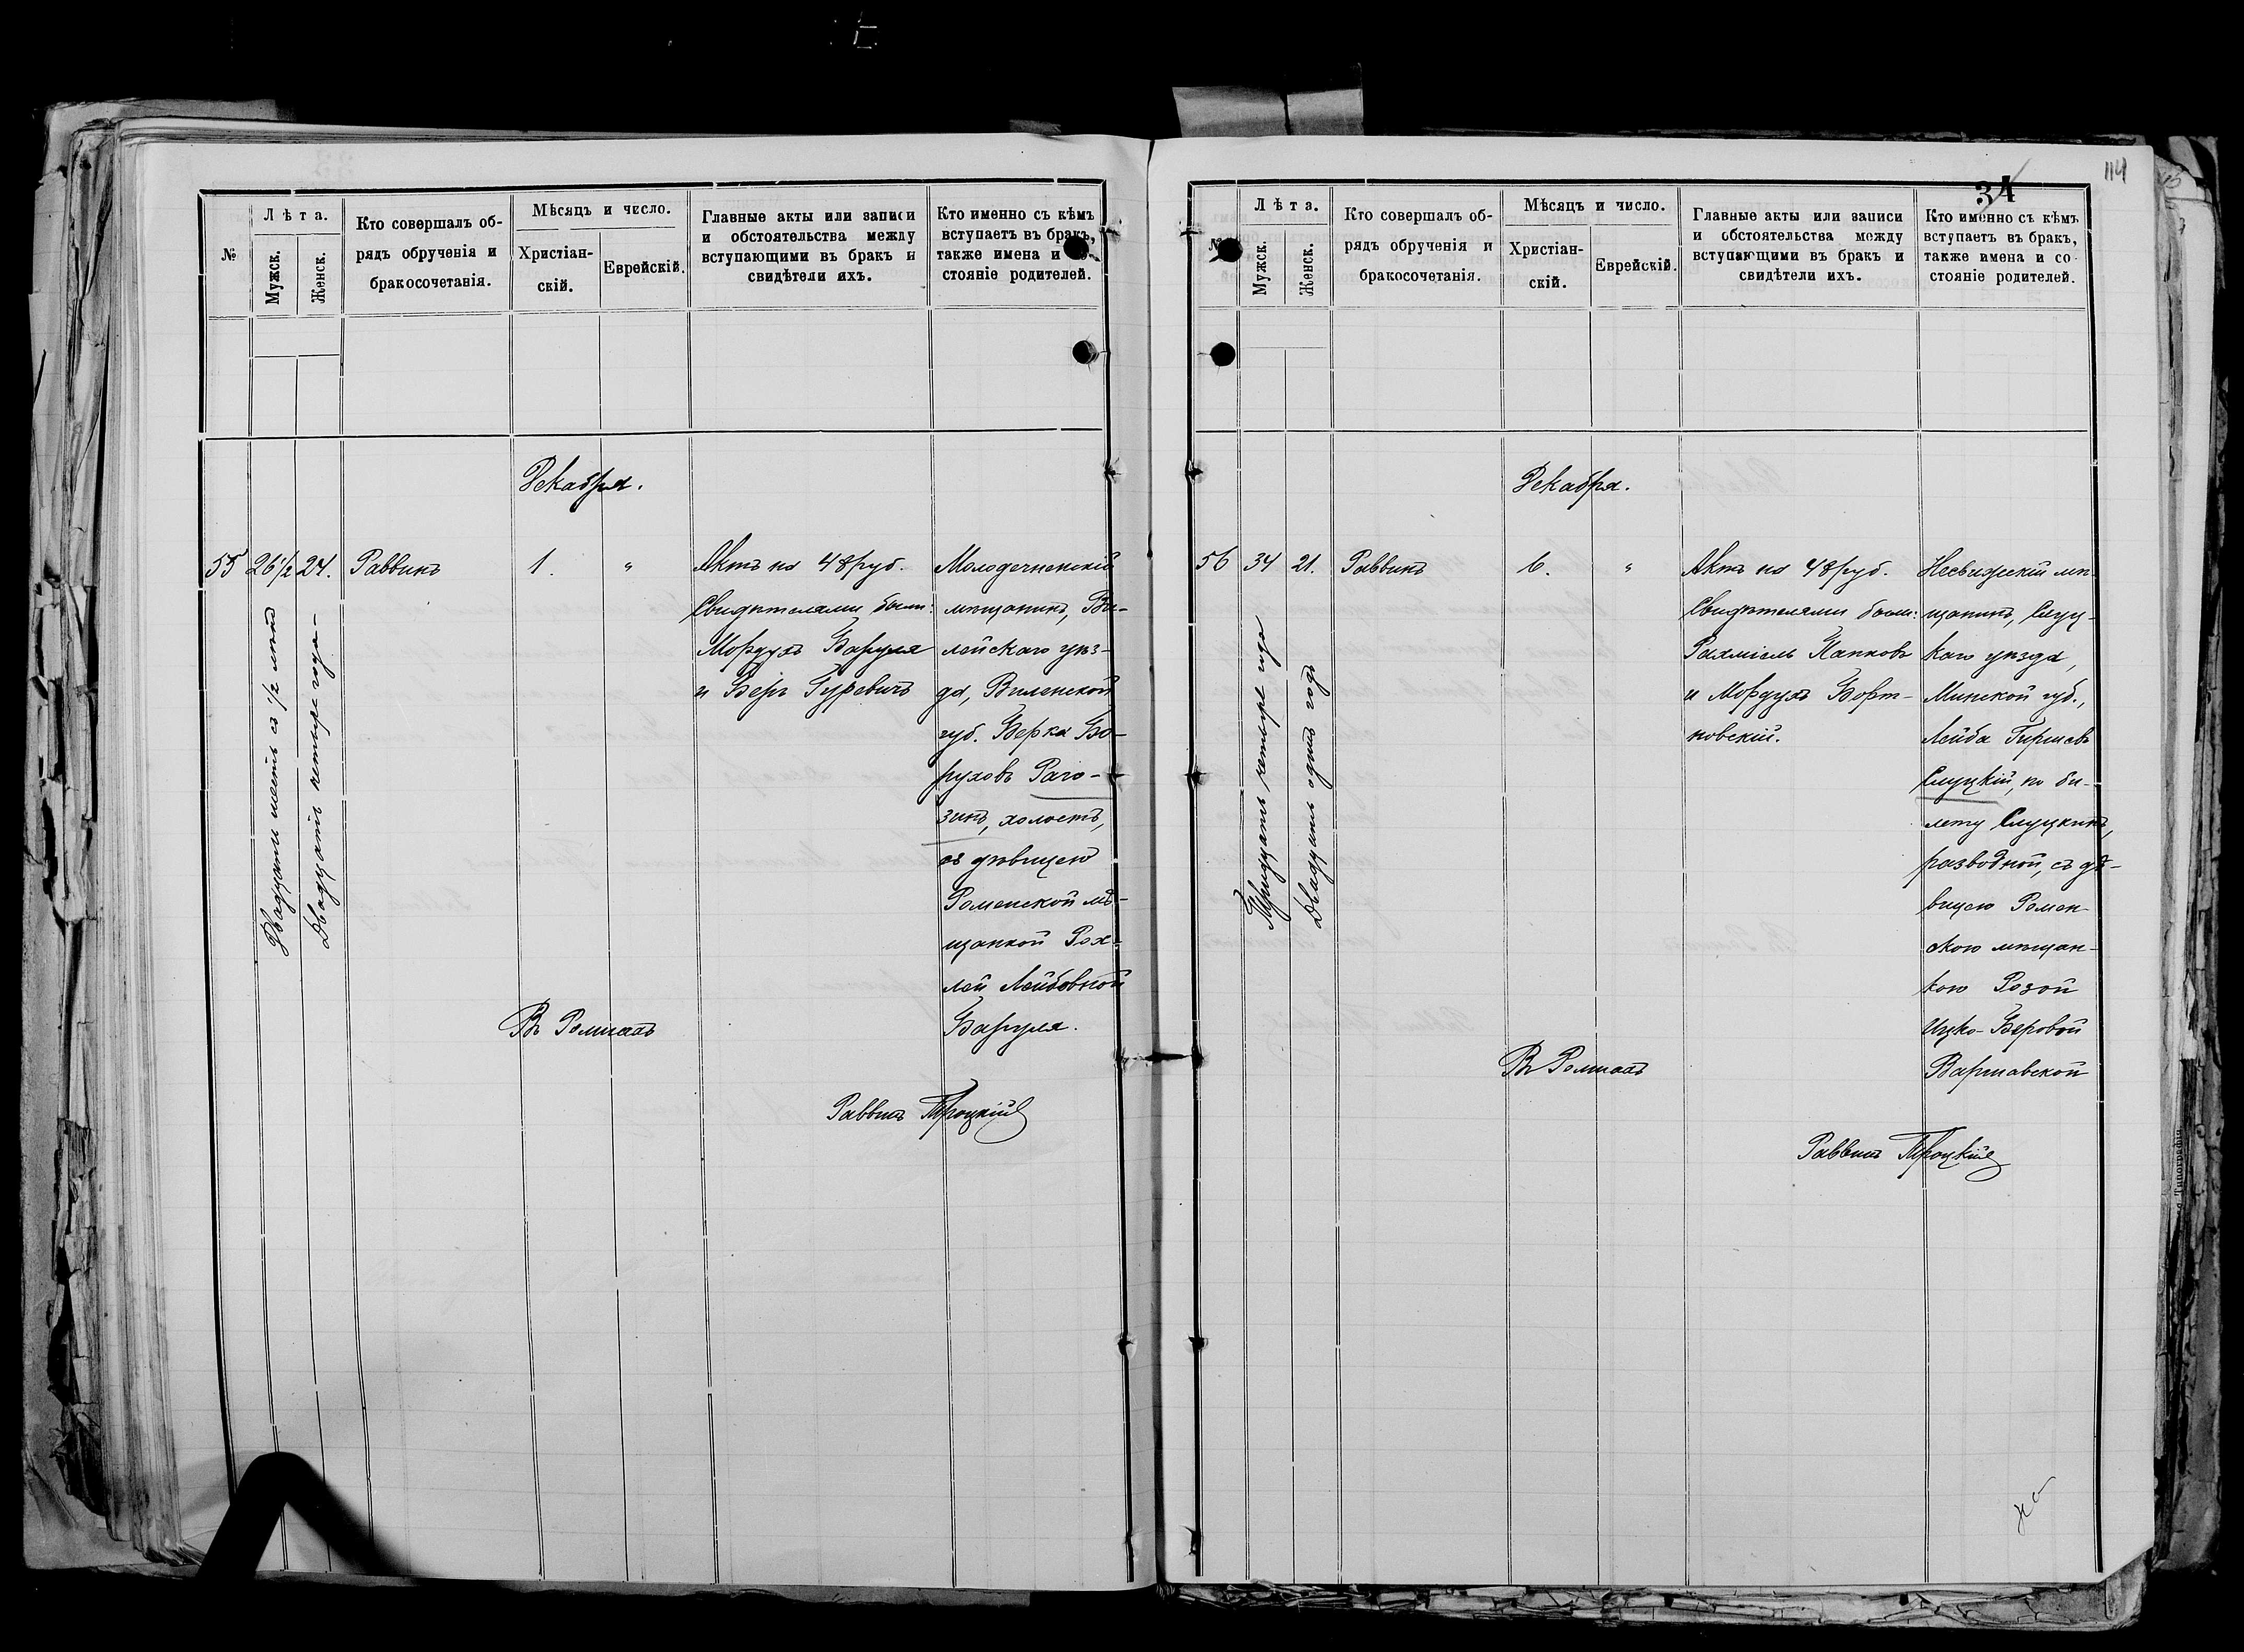 №
Лѣта.
Мужск.
Женск.
Кто совершалъ об-
рядъ обрученія и
бракосочетанія.
Мѣсяцъ и число.
Христіан-
скій.
Еврейскій.
Главные акты или записи
и обстоятельства между
вступающими въ бракъ и
свидѣтели ихъ.
Кто именно съ кѣмъ
вступаетъ въ бракъ,
также имена и со-
стояніе родителей.
Декабря.
55
26 1/2
24.
Двадцать шесть съ 1/2 лѣтъ
Двадцать четыре года
Раввинъ
1.
"
Актъ на 48 руб.
Свидѣтелями были:
Мордухъ Баруля
и Беръ Гуревичъ
Молодечненскій
мѣщанинъ, Ви-
лейскаго уѣз-
да, Виленской
губ. Берка Бо-
руховъ Раго-
зинъ, холостъ,
съ дѣвицею
Роменской мѣ-
щанкой Рох-
лей Лейбовной
Баруля.
Въ Ромнахъ
Раввинъ Троцкій
114
34
№
Лѣта.
Мужск.
Женск.
Кто совершалъ об-
рядъ обрученія и
бракосочетанія.
Мѣсяцъ и число.
Христіан-
скій.
Еврейскій.
Главные акты или записи
и обстоятельства между
вступающими въ бракъ и
свидѣтели ихъ.
Кто именно съ кѣмъ
вступаетъ въ бракъ,
также имена и со
стояніе родителей.
Декабря.
56
34
21.
Тридцать четыре года
Двадцать одинъ годъ
Раввинъ
6.
"
Актъ на 48 руб.
Свидѣтелями были:
Рахміель Папковъ
и Мордухъ Борт-
новскій.
Несвижскій мѣ-
щанинъ, Слуц-
каго уѣзда,
Минской губ.,
Лейба Гиршевъ
Слуцкій, по би-
лету Слуцкинъ,
разводной, съ дѣ-
вицею Ромен-
скою мѣщан-
кою Розой
Ицко-Беровой
Варшавской
Въ Ромнахъ
Раввинъ Троцкій